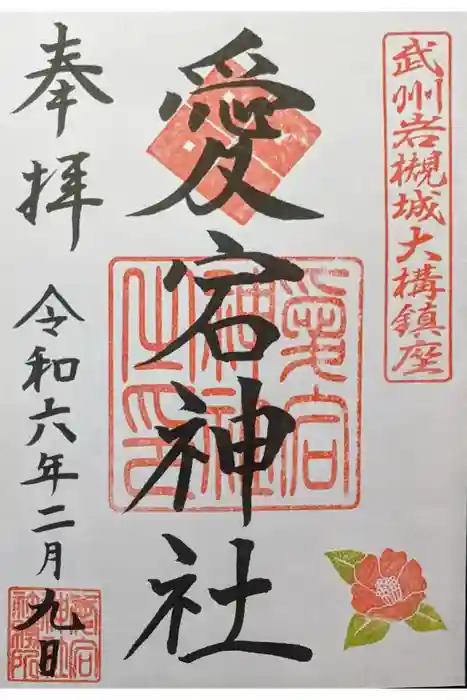 武州岩槻城大構鎮座
愛宕神社
愛宕
神社
之印
奉拝
令和六年二月九日
愛宕
神社